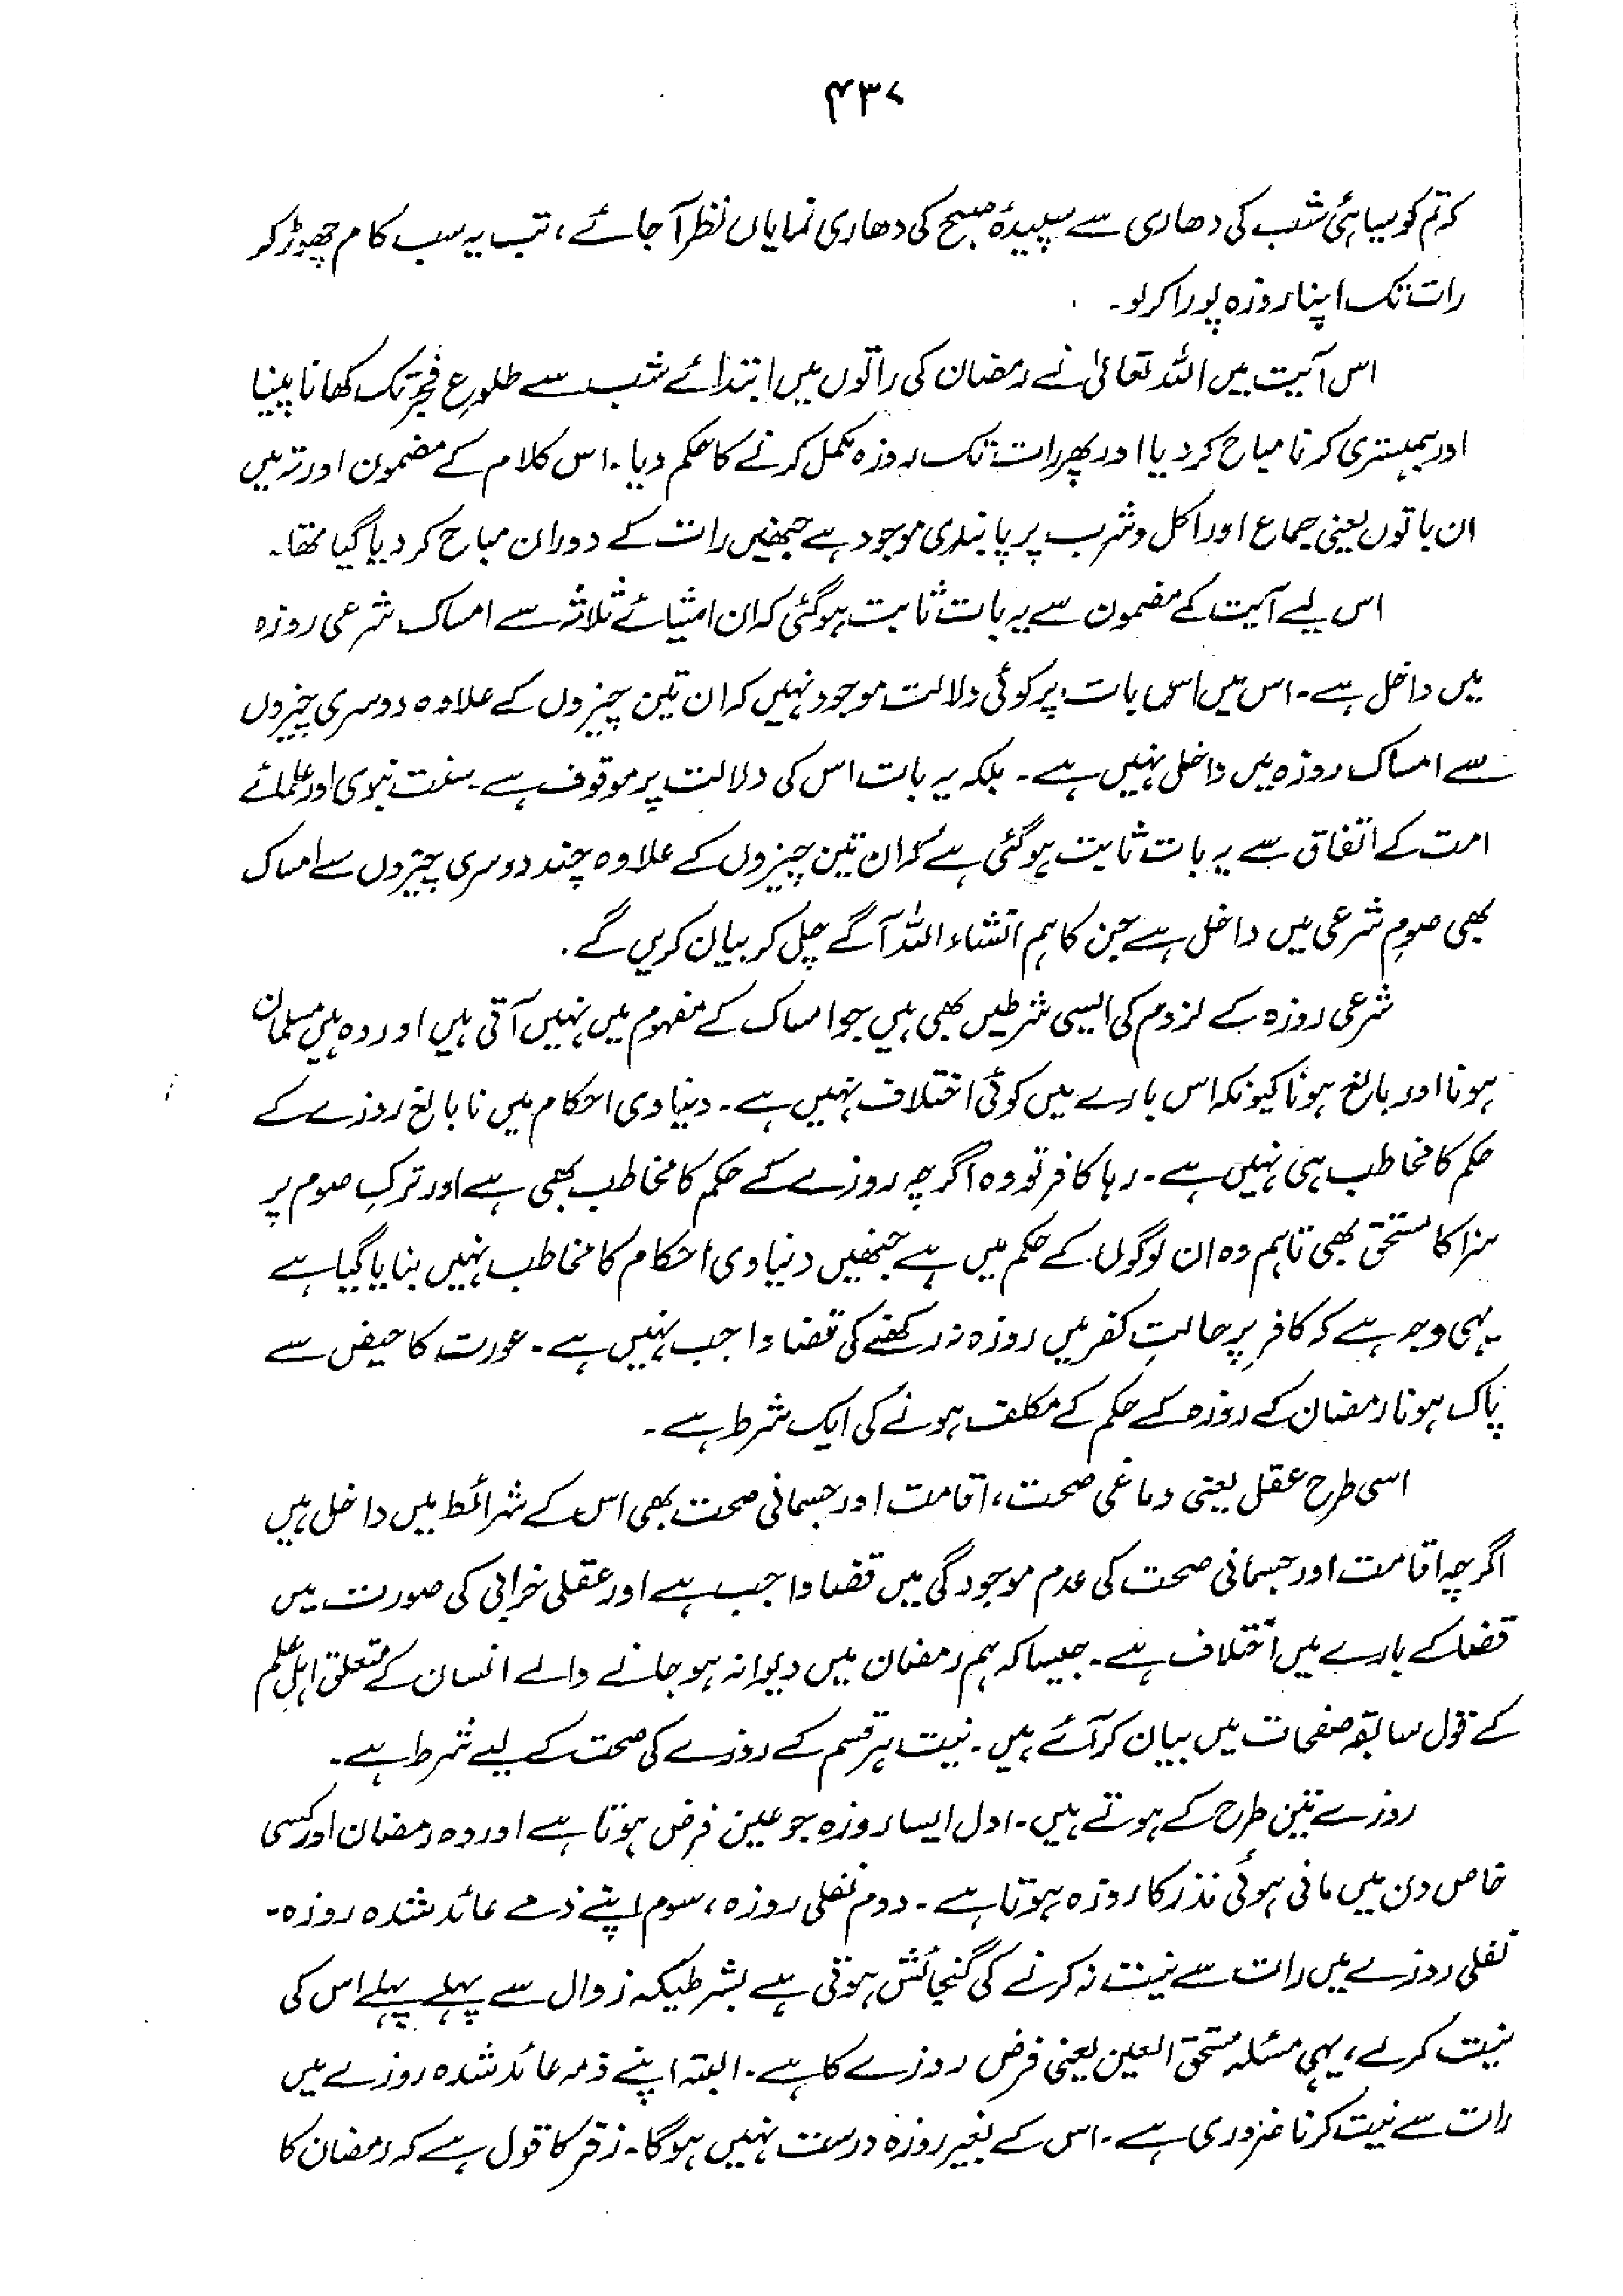 ۴۳۷
کہ تم کو سیاہئ شب کی دھاری سے سپیدۂ صبح کی دھاری نمایاں نظر آ جائے، تب یہ سب کام چھوڑ کر
رات تک اپنا روزہ پورا کر لو۔
اس آیت میں اللہ تعالیٰ نے رمضان کی راتوں میں ابتدائے شب سے طلوعِ فجر تک کھانا پینا
اور ہمبستری کرنا مباح کر دیا اور پھر رات تک روزہ مکمل کرنے کا حکم دیا۔ اس کلام کے مضمون اور تہ میں
ان باتوں یعنی جماع اور اکل و شرب پر پابندی موجود ہے جنھیں رات کے دوران مباح کر دیا گیا تھا۔
اس لیے آیت کے مضمون سے یہ بات ثابت ہو گئی کہ ان اشیائے ثلاثہ سے امساک شرعی روزہ
میں داخل ہے۔ اس میں اس بات پر کوئی دلالت موجود نہیں کہ ان تین چیزوں کے علاوہ دوسری چیزوں
سے امساک روزہ میں داخل نہیں ہے۔ بلکہ یہ بات اس کی دلالت پر موقوف ہے۔ سنت نبوی اور علمائے
امت کے اتفاق سے یہ بات ثابت ہو گئی ہے کہ ان تین چیزوں کے علاوہ چند دوسری چیزوں سے امساک
بھی صومِ شرعی میں داخل ہے جن کا ہم انشاء اللہ آگے چل کر بیان کریں گے۔
شرعی روزہ کے لزوم کی ایسی شرطیں بھی ہیں جو امساک کے مفہوم میں نہیں آتی ہیں اور وہ ہیں مسلمان
ہونا اور بالغ ہونا کیونکہ اس بارے میں کوئی اختلاف نہیں ہے۔ دنیاوی احکام میں نابالغ روزے کے
حکم کا مخاطب ہی نہیں ہے۔ رہا کافر تو وہ اگرچہ روزے کے حکم کا مخاطب بھی ہے اور ترکِ صوم پر
سزا کا مستحق بھی تاہم وہ ان لوگوں کے حکم میں ہے جنھیں دنیاوی احکام کا مخاطب نہیں بنایا گیا ہے
یہی وجہ ہے کہ کافر پر حالتِ کفر میں روزہ نہ رکھنے کی قضا واجب نہیں ہے۔ عورت کا حیض سے
پاک ہونا رمضان کے روزہ کے حکم کے مکلف ہونے کی ایک شرط ہے۔
اسی طرح عقل یعنی دماغی صحت، اقامت اور جسمانی صحت بھی اس کے شرائط میں داخل ہیں
اگرچہ اقامت اور جسمانی صحت کی عدم موجودگی میں قضا واجب ہے اور عقلی خرابی کی صورت میں
قضا کے بارے میں اختلاف ہے۔ جیسا کہ ہم رمضان میں دیوانہ ہو جانے والے انسان کے متعلق اہلِ علم
کے قول سابقہ صفحات میں بیان کر آئے ہیں۔ نیت ہر قسم کے روزے کی صحت کے لیے شرط ہے۔
روزے تین طرح کے ہوتے ہیں۔ اول ایسا روزہ جو عین فرض ہوتا ہے اور وہ رمضان اور کسی
خاص دن میں مانی ہوئی نذر کا روزہ ہوتا ہے۔ دوم نفلی روزہ، سوم اپنے ذمے عائد شدہ روزہ۔
نفلی روزے میں رات سے نیت نہ کرنے کی گنجائش ہوتی ہے بشرطیکہ زوال سے پہلے پہلے اس کی
نیت کر لے، یہی مسئلہ مستحق العین یعنی فرض روزے کا ہے۔ البتہ اپنے ذمہ عائد شدہ روزے میں
رات سے نیت کرنا ضروری ہے۔ اس کے بغیر روزہ درست نہیں ہوگا۔ زفر کا قول ہے کہ رمضان کا